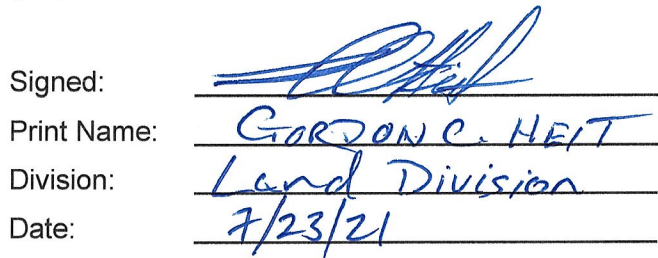 Signed:
Print Name: GORDON C. HEIT
Division: Land Division
Date: 7/23/21